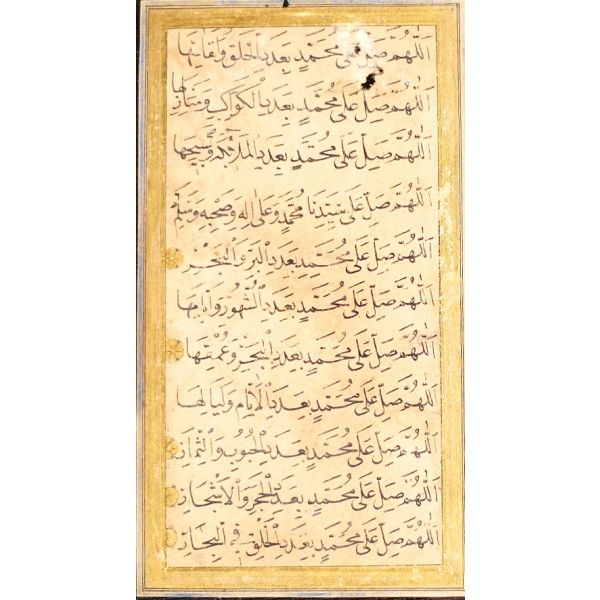 اَللّٰهُمَّ صَلِّ عَلٰى مُحَمَّدٍ بِعَدَدِ الْخَلْقِ وَبَقَائِهَا
اَللّٰهُمَّ صَلِّ عَلٰى مُحَمَّدٍ بِعَدَدِ الْكَوَاكِبِ وَمَنَازِلِهَا
اَللّٰهُمَّ صَلِّ عَلٰى مُحَمَّدٍ بِعَدَدِ الْمَلٰئِكَةِ وَتَسْبِيحِهَا
اَللّٰهُمَّ صَلِّ عَلٰى سَيِّدِنَا مُحَمَّدٍ وَعَلٰى اٰلِهِ وَصَحْبِهِ وَسَلِّمْ
اَللّٰهُمَّ صَلِّ عَلٰى مُحَمَّدٍ بِعَدَدِ الْبَرِّ وَالْبَحْرِ
اَللّٰهُمَّ صَلِّ عَلٰى مُحَمَّدٍ بِعَدَدِ الشُّهُورِ وَاَيَّامِهَا
اَللّٰهُمَّ صَلِّ عَلٰى مُحَمَّدٍ بِعَدَدِ الْبَحْرِ وَعُمْقِهَا
اَللّٰهُمَّ صَلِّ عَلٰى مُحَمَّدٍ بِعَدَدِ الْاَيَّامِ وَلَيَالِهَا
اَللّٰهُمَّ صَلِّ عَلٰى مُحَمَّدٍ بِعَدَدِ الْحُبُوبِ وَالثِّمَارِ
اَللّٰهُمَّ صَلِّ عَلٰى مُحَمَّدٍ بِعَدَدِ الْحَجَرِ وَالْاَشْجَارِ
اَللّٰهُمَّ صَلِّ عَلٰى مُحَمَّدٍ بِعَدَدِ الْخَلْقِ فِي الْبِحَارِ